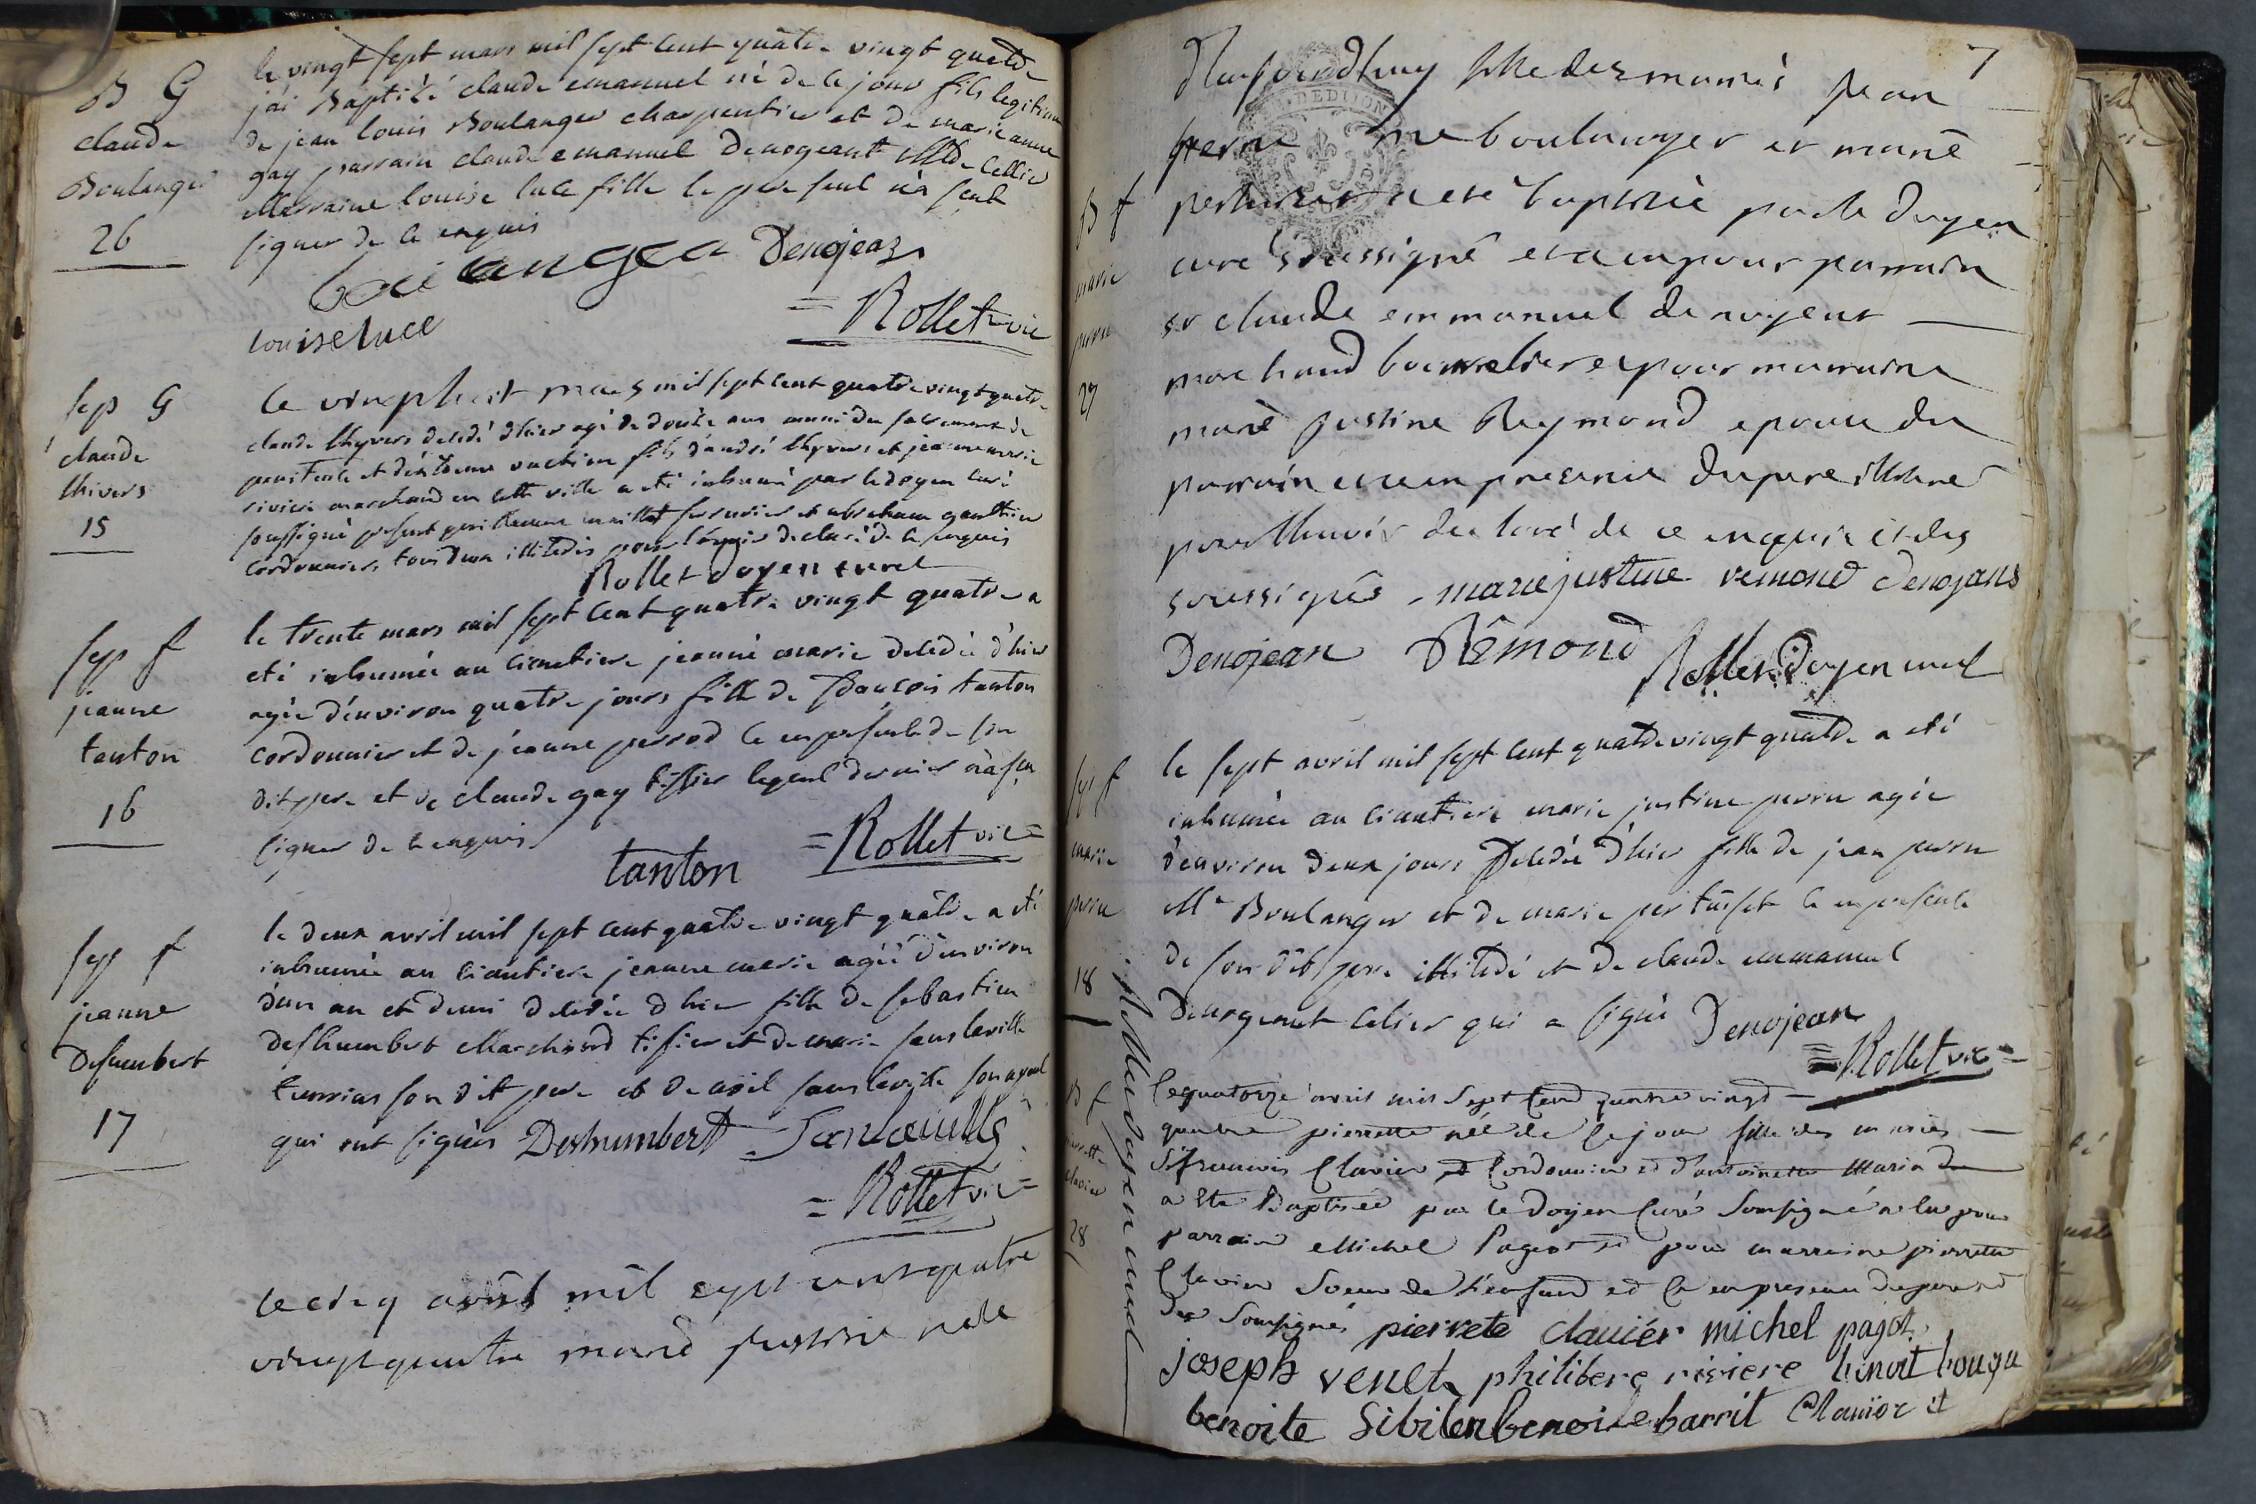 B G
claude
Boulanger
26
le vingt sept mars mil sept cent quatre vingt quatre
j'ai Baptisé claude emanuel né de ce jour fils legitime
de jean louis Boulanger charpentier et de marie anne
gay parrain claude emanuel Denogeant Md Cellier
Marraine louise luce fille le pere seul n'a seut
signer de ce enquis
boulanger Denojean
louise luce
= Rollet vic
sep G
claude
thivers
15
le vingt huit mars mil sept cent quatre vingt quatre
claude thyvers decedé d'hier agé de douze ans muni du sacrement de
penitence et d'extreme onction fils d'andré thyvers et jeanne marie
riviere marchand en cette ville a eté inhumé par le doyen curé
soussigné present guillaume maillet serrurier et abraham gauthier
cordonniers tous deux illiterés pour l'avoir declaré de ce enquis
Rollet doyen curé
sep f
jeanne
tanton
16
le trente mars mil sept cent quatre vingt quatre a
eté inhumée au cimetiere jeanne marie decedée d'hier
agée d'environ quatre jours fille de françois tanton
cordonnier et de jeanne perrod ce en presence de son
dit pere et de claude gay tissier lequel dernier n'a seu
signer de ce enquis
tanton = Rollet vic =
sep f
jeanne
Deshumbert
17
le deux avril mil sept cent quatre vingt quatre a eté
inhumée au cimetiere jeanne marie agée d'environ
d'un an et demi decedée d'hier fille de sebastien
deshumbert Marchand tissier et de marie sanlaville
son dit pere et de sanlaville son ayeul
qui ont signés Deshumbert Sanlaville
= Rollet vic =
le cinq avril mil sept cent quatre
vingt quatre marie justine née
7
B f
marie
perrin
27
fille des mariés jean
perrin me boulanger et marie
pertuiset a eté baptisée par le doyen
curé soussigné et a eu pour parrain
sr claude emmanuel denogent
marchand bourrelier et pour marraine
marie justine Reymond epouse du
parrain ce en presence du pere illiteré
pour l'avoir declaré de ce enquis et des
soussignés marie justine remond denojans
Denojean Rémond Rollet Doyen curé
sep f
marie
perrin
18
le sept avril mil sept cent quatre vingt quatre a eté
inhumée au cimetiere marie justine perrin agée
d'environ deux jours decedée d'hier fille de jean perrin
Me Boulanger et de marie pertuiset ce en presence
de son dit pere illiteré et de claude emmanuel
Denogeant celier qui a signé Denojean
= Rollet vic =
Rollet doyen curé
B f
pierrette
clavier
28
le quatorze avril mil sept cent quatre vingt
quatre pierrette née de ce jour fille des mariés
Sr francois Clavier cordonnier et d'antoinette Marie
a ete Baptisée par le doyen curé soussigné a eu pour
parrain Michel Pagot et pour marraine pierrette
Clavier soeur de l'enfant et ce en presence du pere et
des soussignés pierrete clauiér michel pagot
joseph venet philibere riviere benoit
benoite Sibilen benoite barrit Clauiér